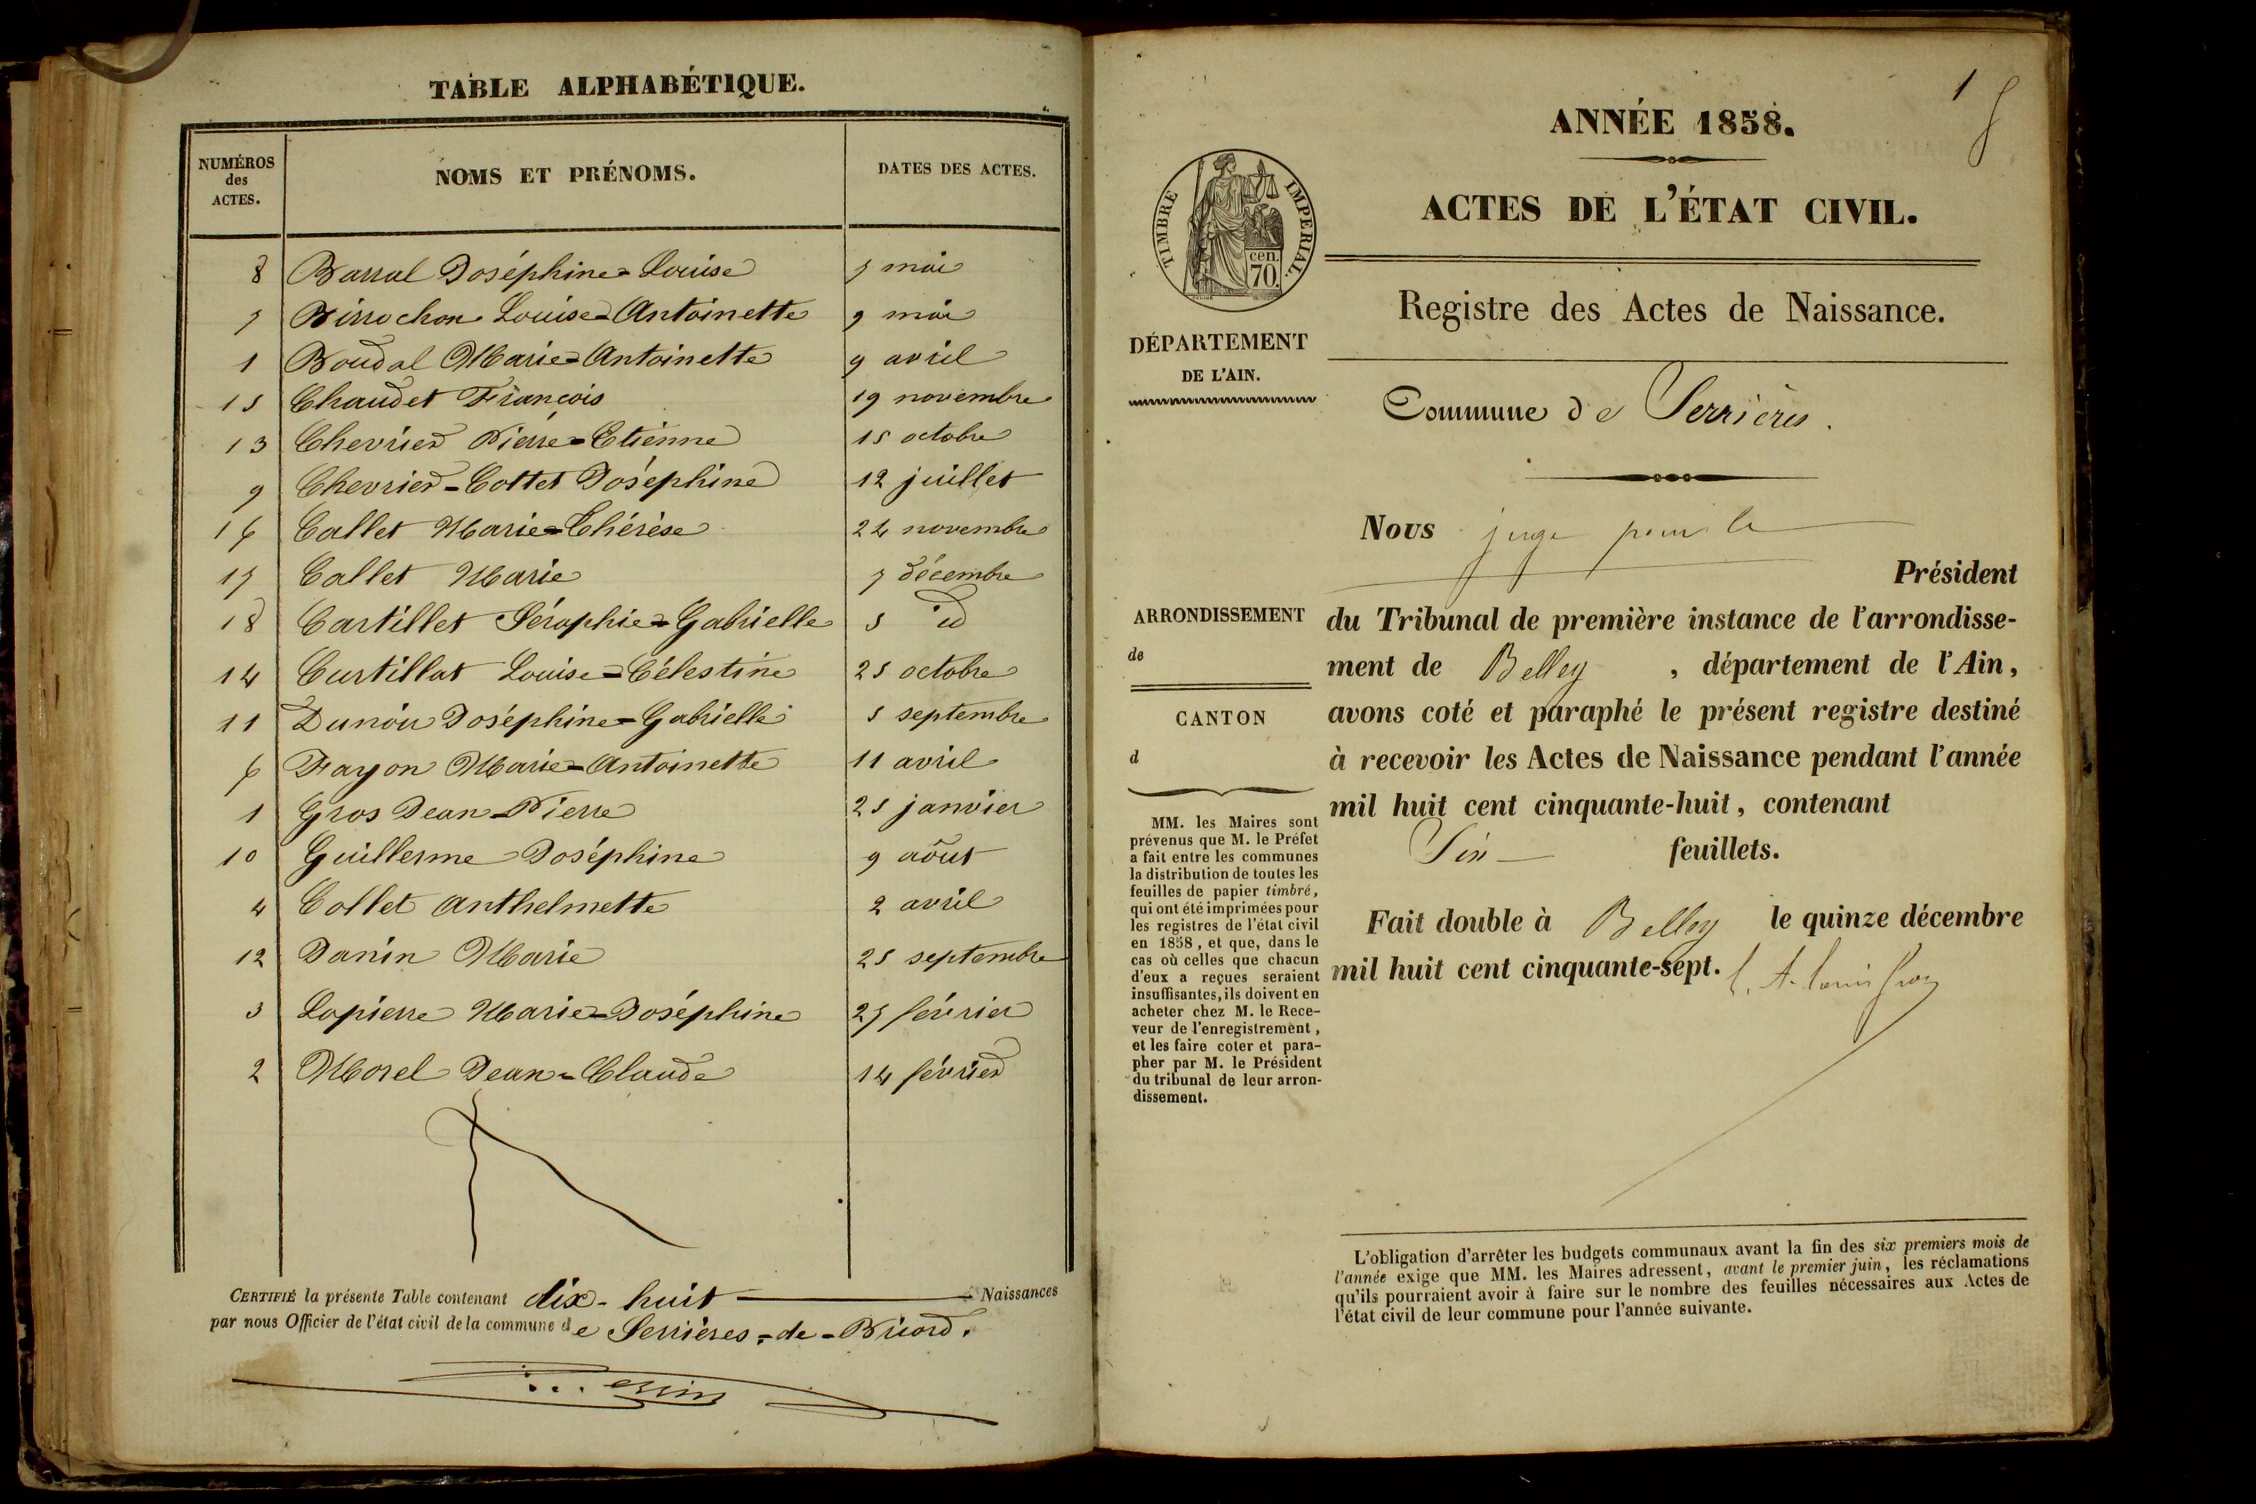 TABLE ALPHABÉTIQUE.
NUMÉROS des ACTES. NOMS ET PRÉNOMS. DATES DES ACTES.
8 Barral Joséphine-Louise 7 mai
7 Birrochon Louise-Antoinette 9 mai
1 Boudal Marie-Antoinette 9 avril
15 Chaudet François 19 novembre
13 Chevrier Pierre-Etienne 15 octobre
9 Chevrier-Cottet Joséphine 12 juillet
16 Callet Marie-Thérèse 24 novembre
17 Callet Marie 7 décembre
18 Cartillet Séraphie-Gabrielle 5 id
14 Curtillat Louise-Célestine 25 octobre
11 Dunoir Joséphine-Gabrielle 5 septembre
6 Fayon Marie-Antoinette 11 avril
1 Gros Jean-Pierre 25 janvier
10 Guillerme Joséphine 9 août
4 Collet Anthelmette 2 avril
12 Janin Marie 25 septembre
3 Lapierre Marie-Joséphine 27 février
2 Morel Jean-Claude 14 février
CERTIFIÉ la présente Table contenant dix-huit Naissances
par nous Officier de l'état civil de la commune de Serrières-de-Briord.
1
ANNÉE 1858.
ACTES DE L'ÉTAT CIVIL.
TIMBRE IMPÉRIAL.
cen.
70.
Registre des Actes de Naissance.
DÉPARTEMENT
DE L'AIN.
Commune de Serrières.
Nous juge pour le
Président
du Tribunal de première instance de l'arrondisse-
ment de Belley, département de l'Ain,
avons coté et paraphé le présent registre destiné
à recevoir les Actes de Naissance pendant l'année
mil huit cent cinquante-huit, contenant
Six feuillets.
Fait double à Belley le quinze décembre
mil huit cent cinquante-sept.
ARRONDISSEMENT
de
CANTON
d
MM. les Maires sont
prévenus que M. le Préfet
a fait entre les communes
la distribution de toutes les
feuilles de papier timbré,
qui ont été imprimées pour
les registres de l'état civil
en 1858, et que, dans le
cas où celles que chacun
d'eux a reçues seraient
insuffisantes, ils doivent en
acheter chez M. le Rece-
veur de l'enregistrement,
et les faire coter et para-
pher par M. le Président
du tribunal de leur arron-
dissement.
L'obligation d'arrêter les budgets communaux avant la fin des six premiers mois de
l'année exige que MM. les Maires adressent, avant le premier juin, les réclamations
qu'ils pourraient avoir à faire sur le nombre des feuilles nécessaires aux Actes de
l'état civil de leur commune pour l'année suivante.